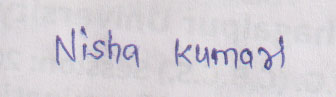 Nisha Kumari